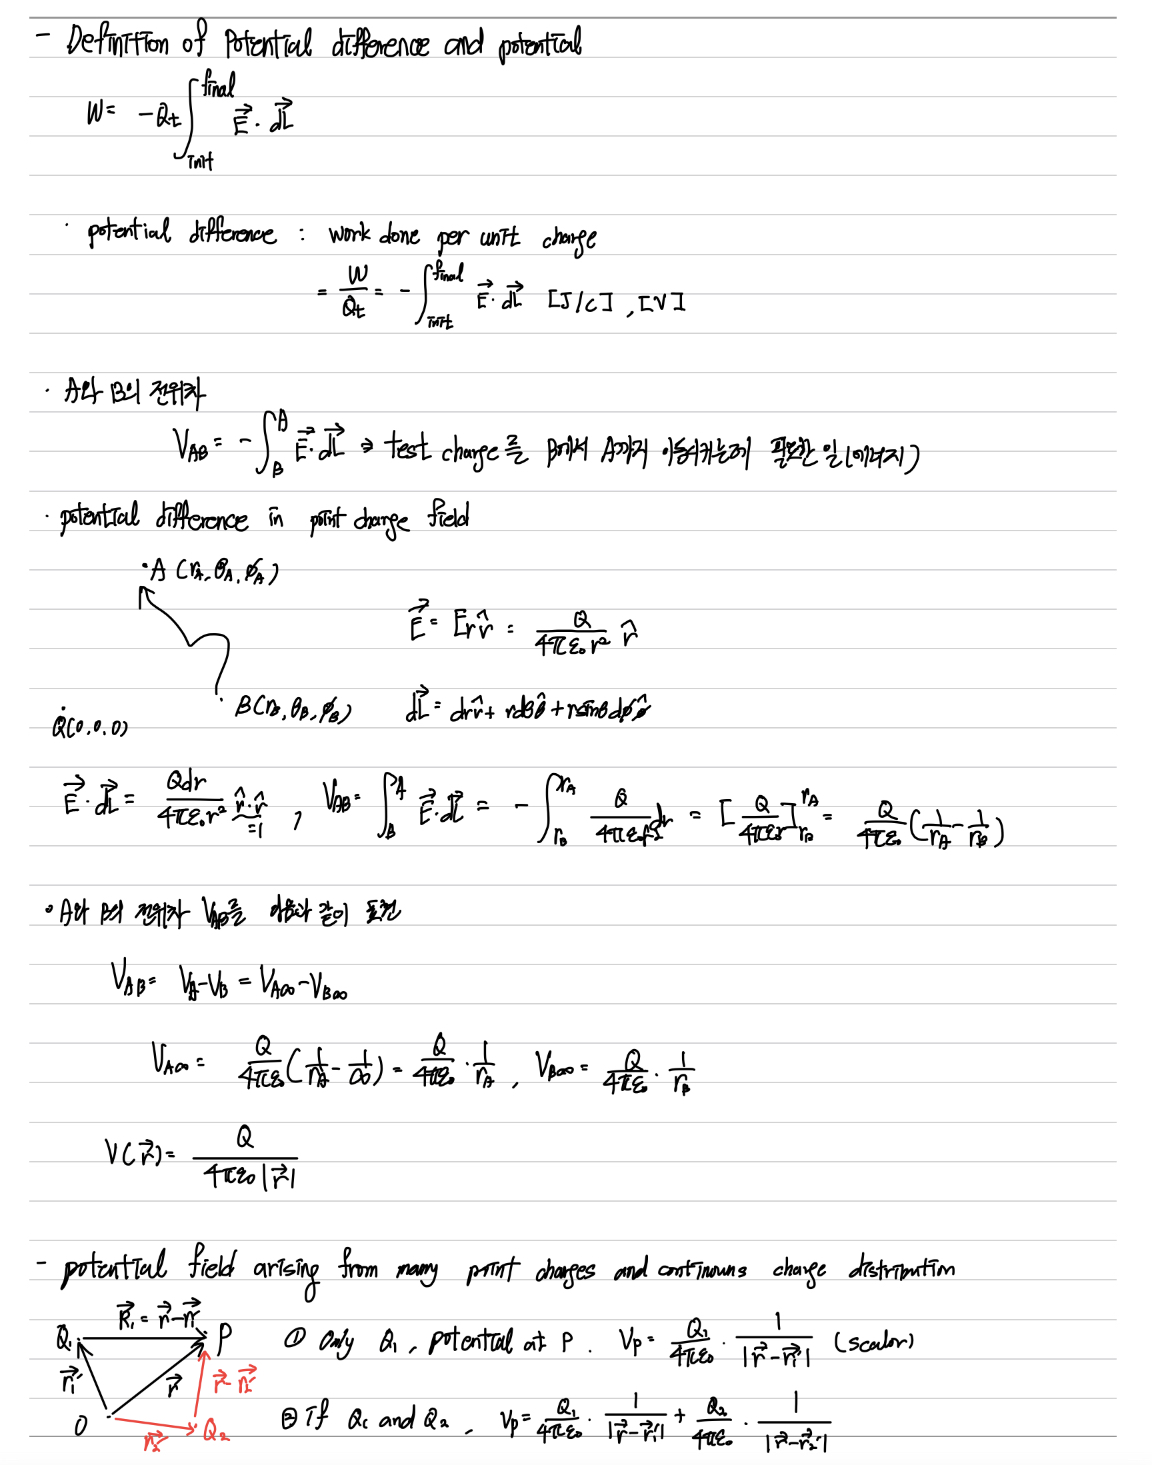 - Definition of Potential difference and potential
W = -Qt ∫init^final E⃗ · dL⃗
· potential difference : work done per unit charge
= W/Qt = - ∫init^final E⃗ · dL⃗ [J/C] , [V]
· A와 B의 전위차
V_AB = - ∫_B^A E⃗ · dL⃗ ⇒ test charge를 B에서 A까지 이동시키는데 필요한 일(에너지)
· potential difference in point charge field
· A (r_A, θ_A, φ_A)
E⃗ = E_r r̂ = Q/(4πε₀r²) r̂
· B(r_B, θ_B, φ_B) dL⃗ = dr r̂ + rdθ θ̂ + rsinθ dφ φ̂
Q(0,0,0)
E⃗ · dL⃗ = Qdr/(4πε₀r²) r̂·r̂ =1 , V_AB = ∫_B^A E⃗ · dL⃗ = - ∫_{r_B}^{r_A} Q/(4πε₀r²) dr = [Q/(4πε₀r)]_{r_B}^{r_A} = Q/(4πε₀) (1/r_A - 1/r_B)
· A와 B의 전위차 V_AB를 다음과 같이 표현
V_AB = V_A - V_B = V_A∞ - V_B∞
V_A∞ = Q/(4πε₀) (1/r_A - 1/∞) = Q/(4πε₀) · 1/r_A , V_B∞ = Q/(4πε₀) · 1/r_B
V(r⃗) = Q/(4πε₀|r⃗|)
- potential field arising from many point charges and continouns charge distribution
R⃗₁ = r⃗ - r⃗₁'
Q₁ P ① Only Q₁, potential at P. V_P = Q₁/(4πε₀) · 1/|r⃗ - r⃗₁'| (scalar)
r⃗₁' r⃗ r⃗ - r⃗₂'
O r⃗₂' Q₂ ② If Q₁ and Q₂ , V_P = Q₁/(4πε₀) · 1/|r⃗ - r⃗₁'| + Q₂/(4πε₀) · 1/|r⃗ - r⃗₂'|